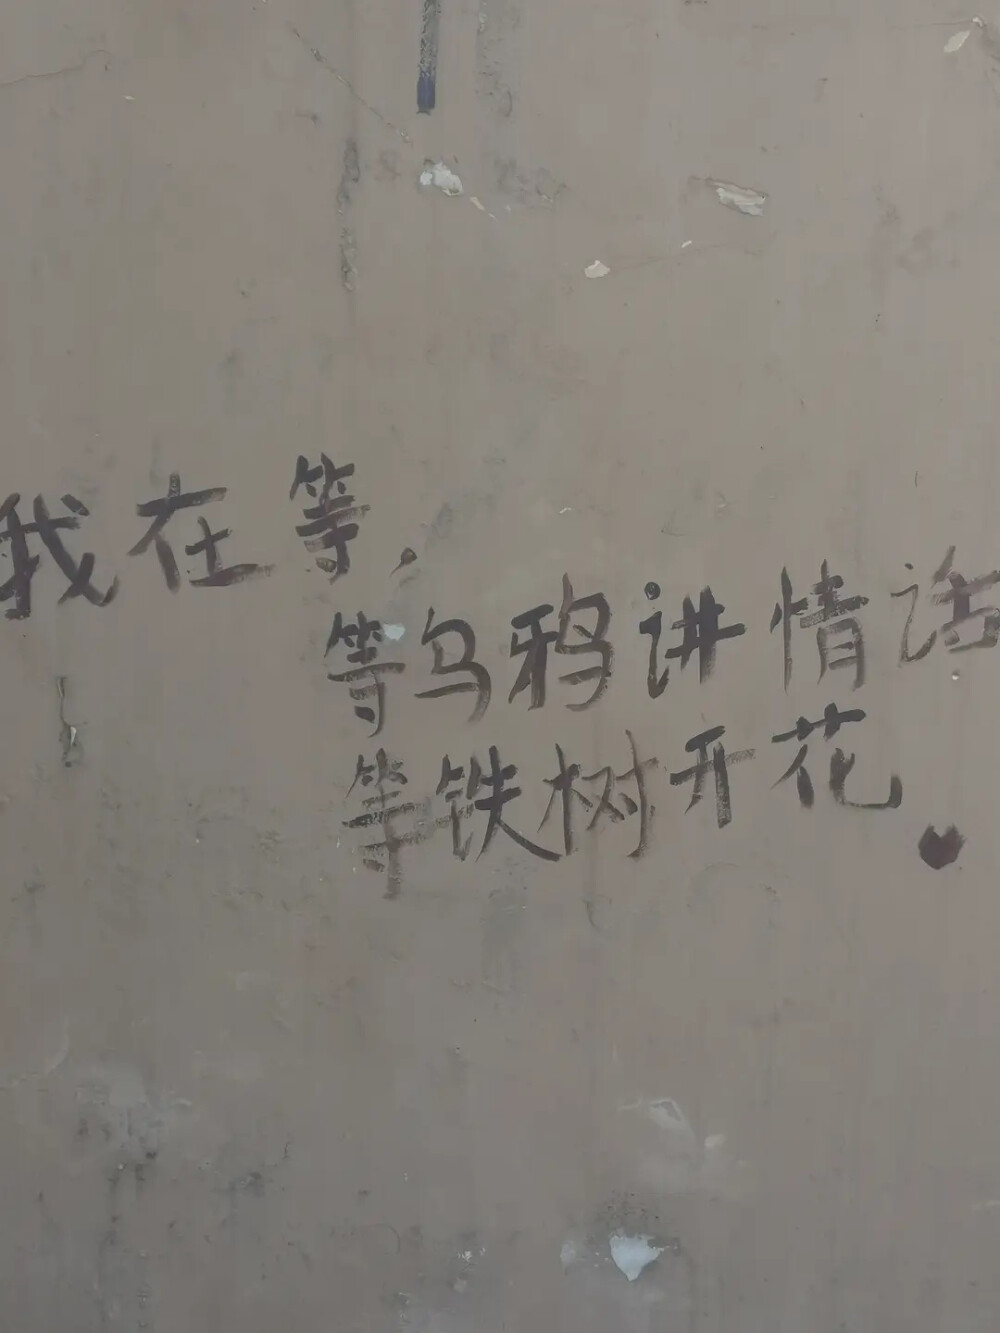 我在等，
等乌鸦讲情话
等铁树开花